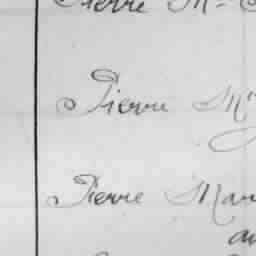 Pierre M
Pierre M
Pierre Mar
au